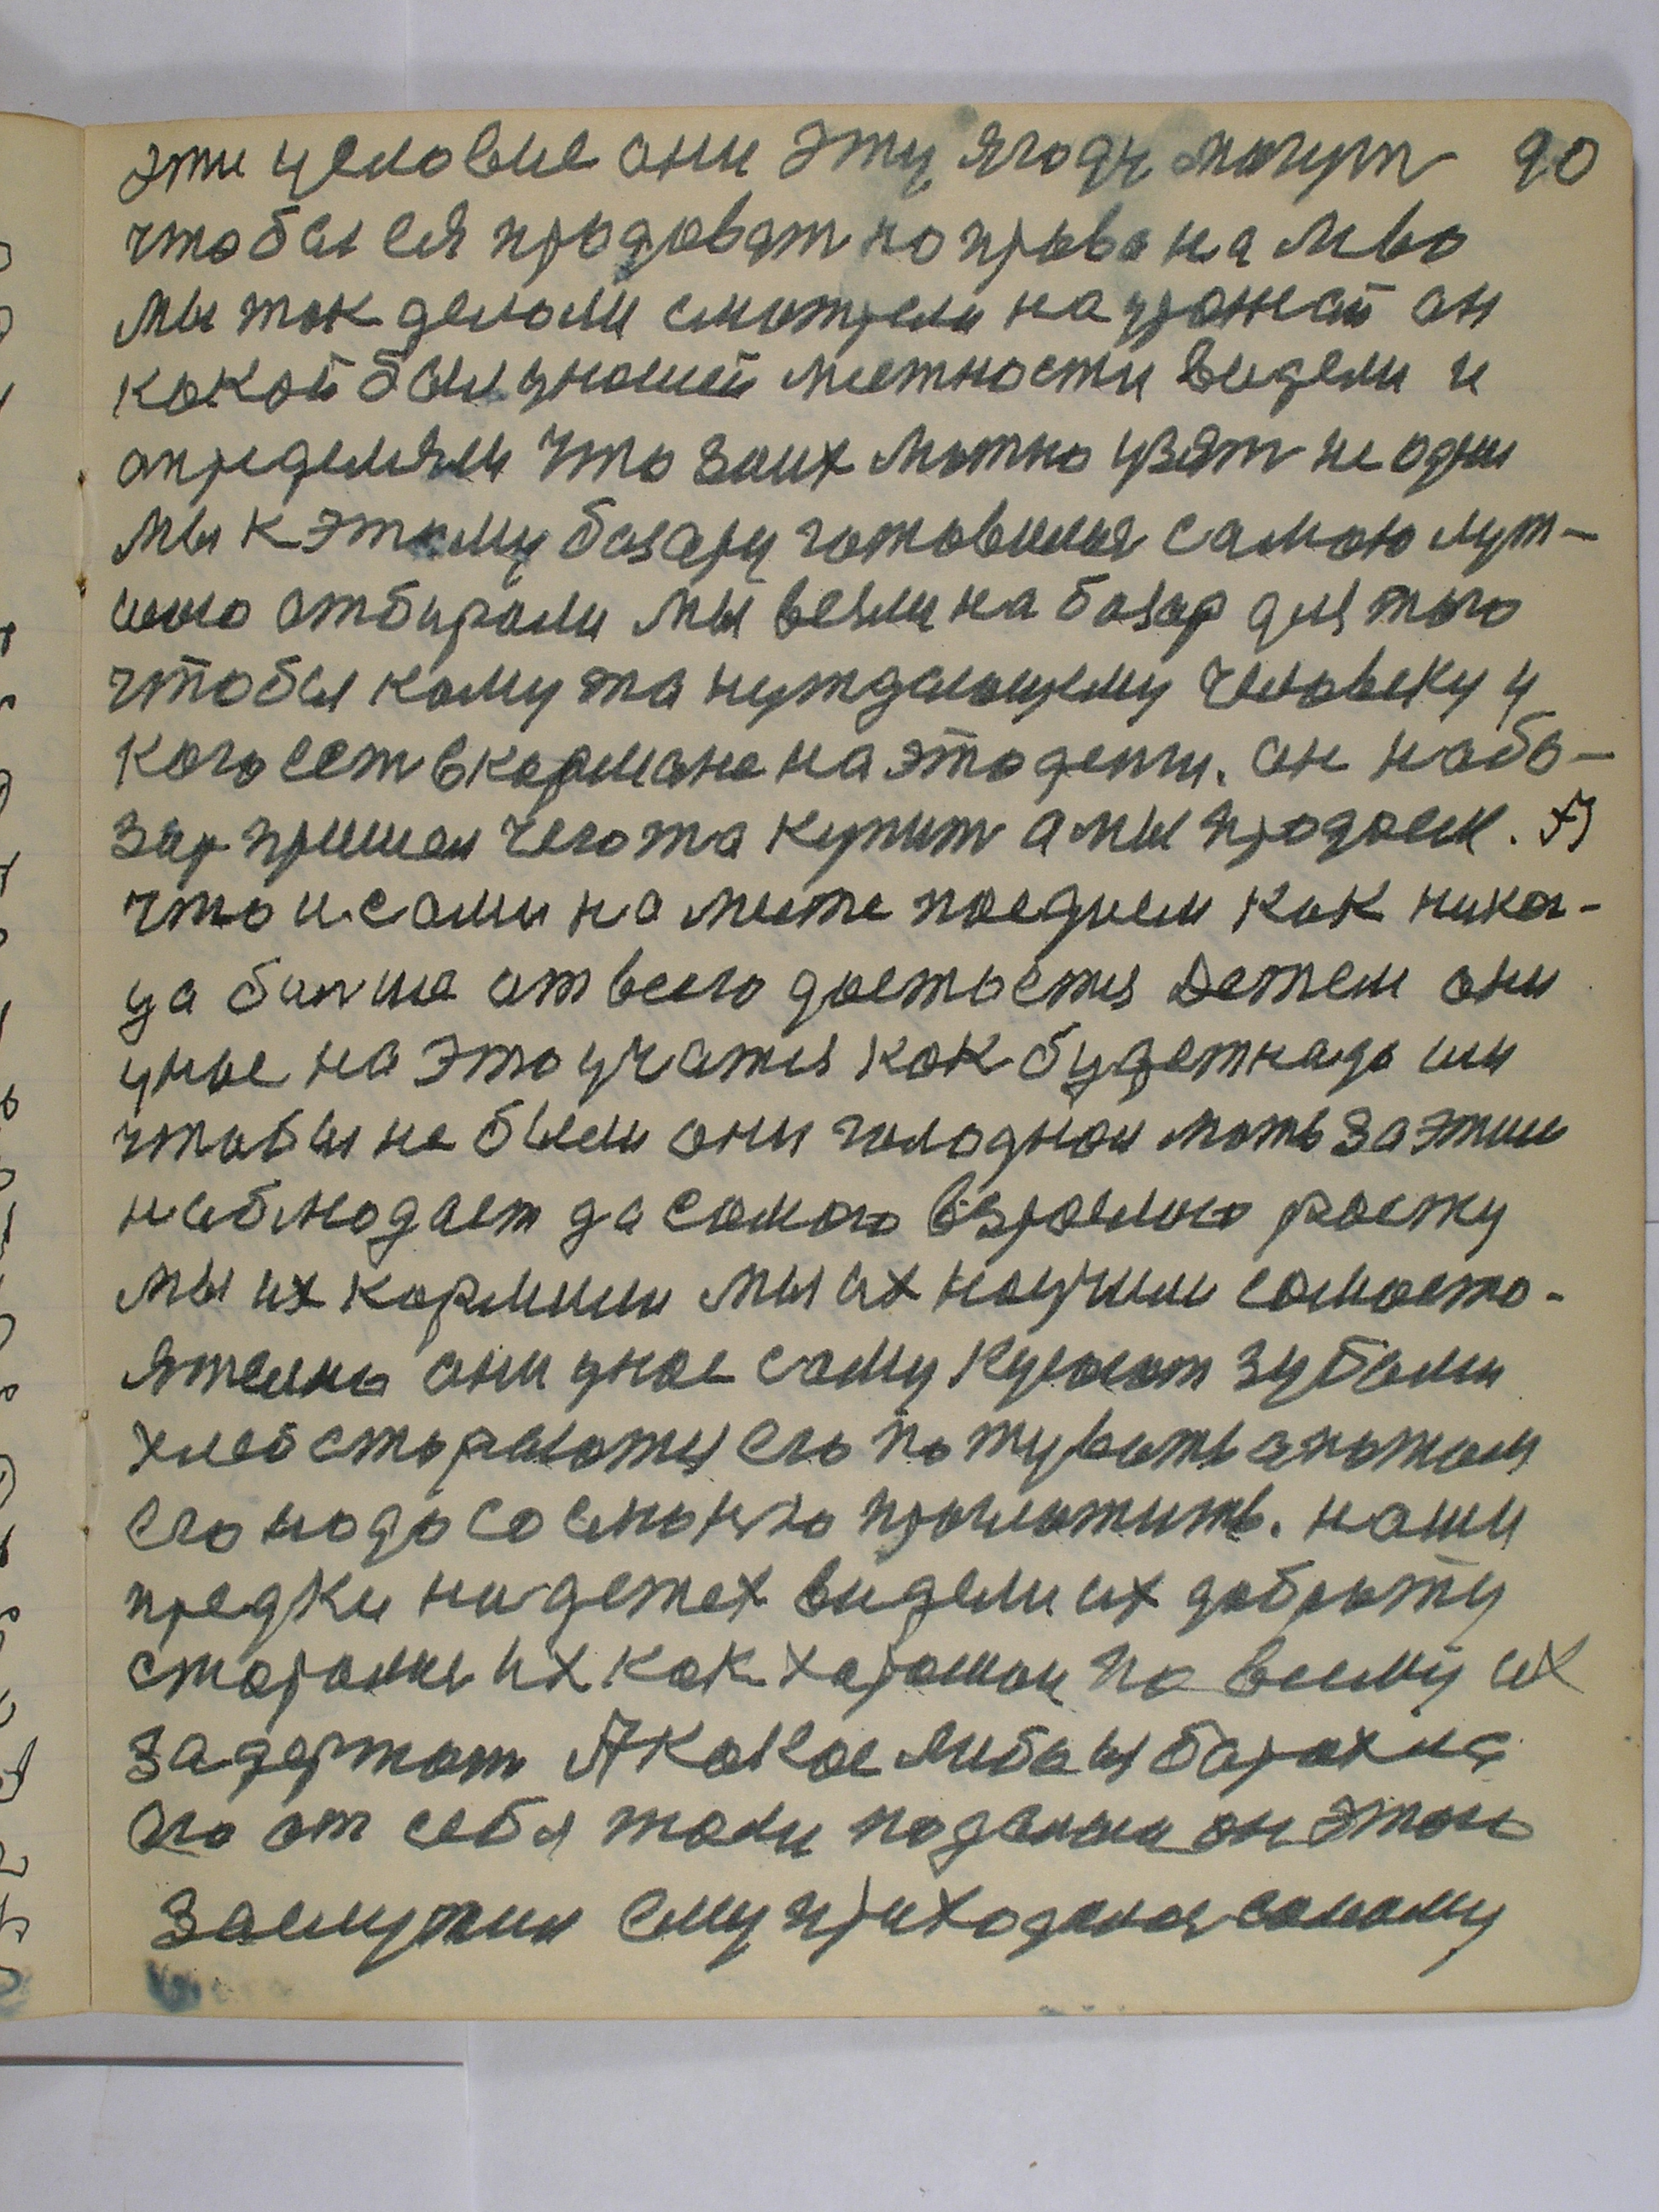 эти условие они эту ягоду могут 90
чтобы ея продоват но права на лево
мы так делоли смотрели на урожай он
какой был унашей местности видели и
определяли что заих можно узят не одни
мы к этому базару готовилися самою лут-
шею отбирали мы везли на базар для того
чтобы кому та нуждающему человеку у
кого ест вкормане на это денги. он на ба-
зар пришел чегота купит а мы продоем. А
что и сами на месте поедием как никог-
да болше от всего достоется Детем они
уное на это учатся как будет надо им
чтобы не были они голодной мать за этим
наблюдает да самого взрослого росту
мы их кормили мы их научили самосто-
ятелно они уное саму кушоют зубами
хлеб стораются его по жувать а потом
его надо со слюною проглотить. наши
предки на детех видели их доброту
сторание их как харошои по всему их
задержат А какое либо ы барахла
его от себя толи подалши он этого
заслужил ему приходился самому